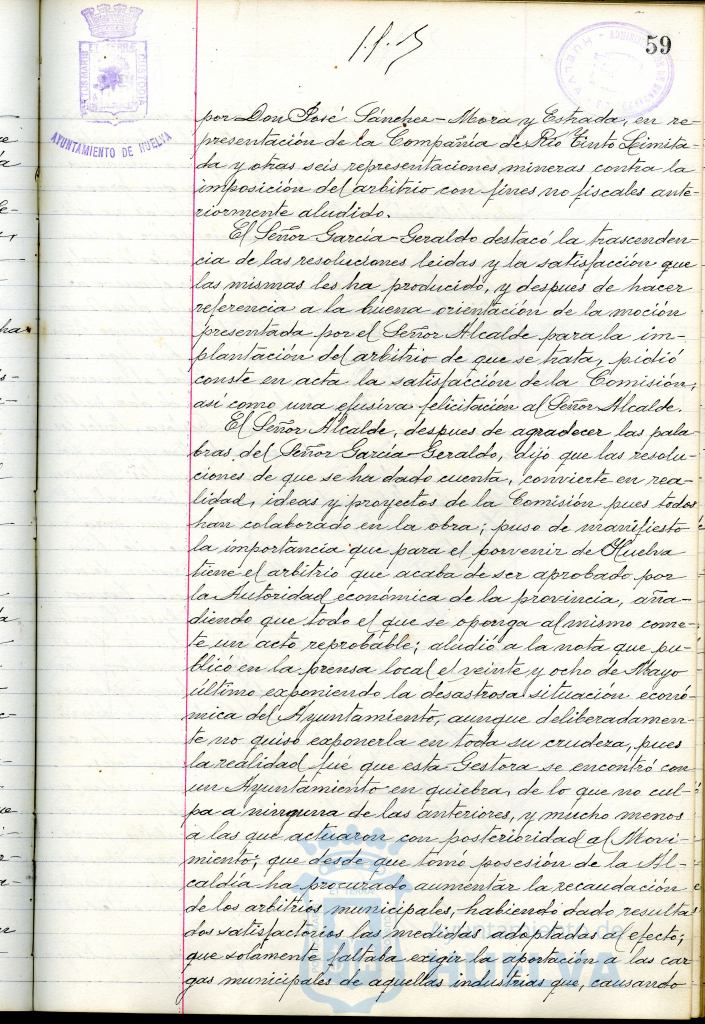 59
AYUNTAMIENTO DE HUELVA
por Don José Sánchez-Mora y Estrada, en re-
presentación de la Compañía de Rio Tinto Limita-
da y otras seis representaciones mineras contra la
imposición del arbitrio con fines no fiscales ante-
riormente aludido.
El Señor García-Geraldo destacó la trascenden-
cia de las resoluciones leidas y la satisfacción que
las mismas les ha producido, y despues de hacer
referencia a la buena orientación de la moción
presentada por el Señor Alcalde para la im-
plantación del arbitrio de que se trata, pidió
conste en acta la satisfacción de la Comisión,
así como una efusiva felicitación al Señor Alcalde.
El Señor Alcalde, despues de agradecer las pala-
bras del Señor García-Geraldo, dijo que las resolu-
ciones de que se ha dado cuenta, convierte en rea-
lidad, ideas y proyectos de la Comisión pues todos
han colaborado en la obra; puso de manifiesto
la importancia que para el porvenir de Huelva
tiene el arbitrio que acaba de ser aprobado por
la Autoridad económica de la provincia, aña-
diendo que todo el que se oponga al mismo come-
te un acto reprobable; aludió a la nota que pu-
blicó en la prensa local el veinte y ocho de Mayo
último exponiendo la desastrosa situación econó-
mica del Ayuntamiento, aunque deliberadamen-
te no quiso exponerla en toda su crudeza, pues
la realidad fué que esta Gestora se encontró con
un Ayuntamiento en quiebra, de lo que no cul-
pa a ninguna de las anteriores, y mucho menos
a las que actuaron con posterioridad al Movi-
miento; que desde que tomó posesión de la Al-
caldía ha procurado aumentar la recaudación
de los arbitrios municipales, habiendo dado resulta-
dos satisfactorios las medidas adoptadas al efecto;
que solamente faltaba exigir la aportación a las car-
gas municipales de aquellas industrias que, causando
Ayuntamiento de
HUELVA